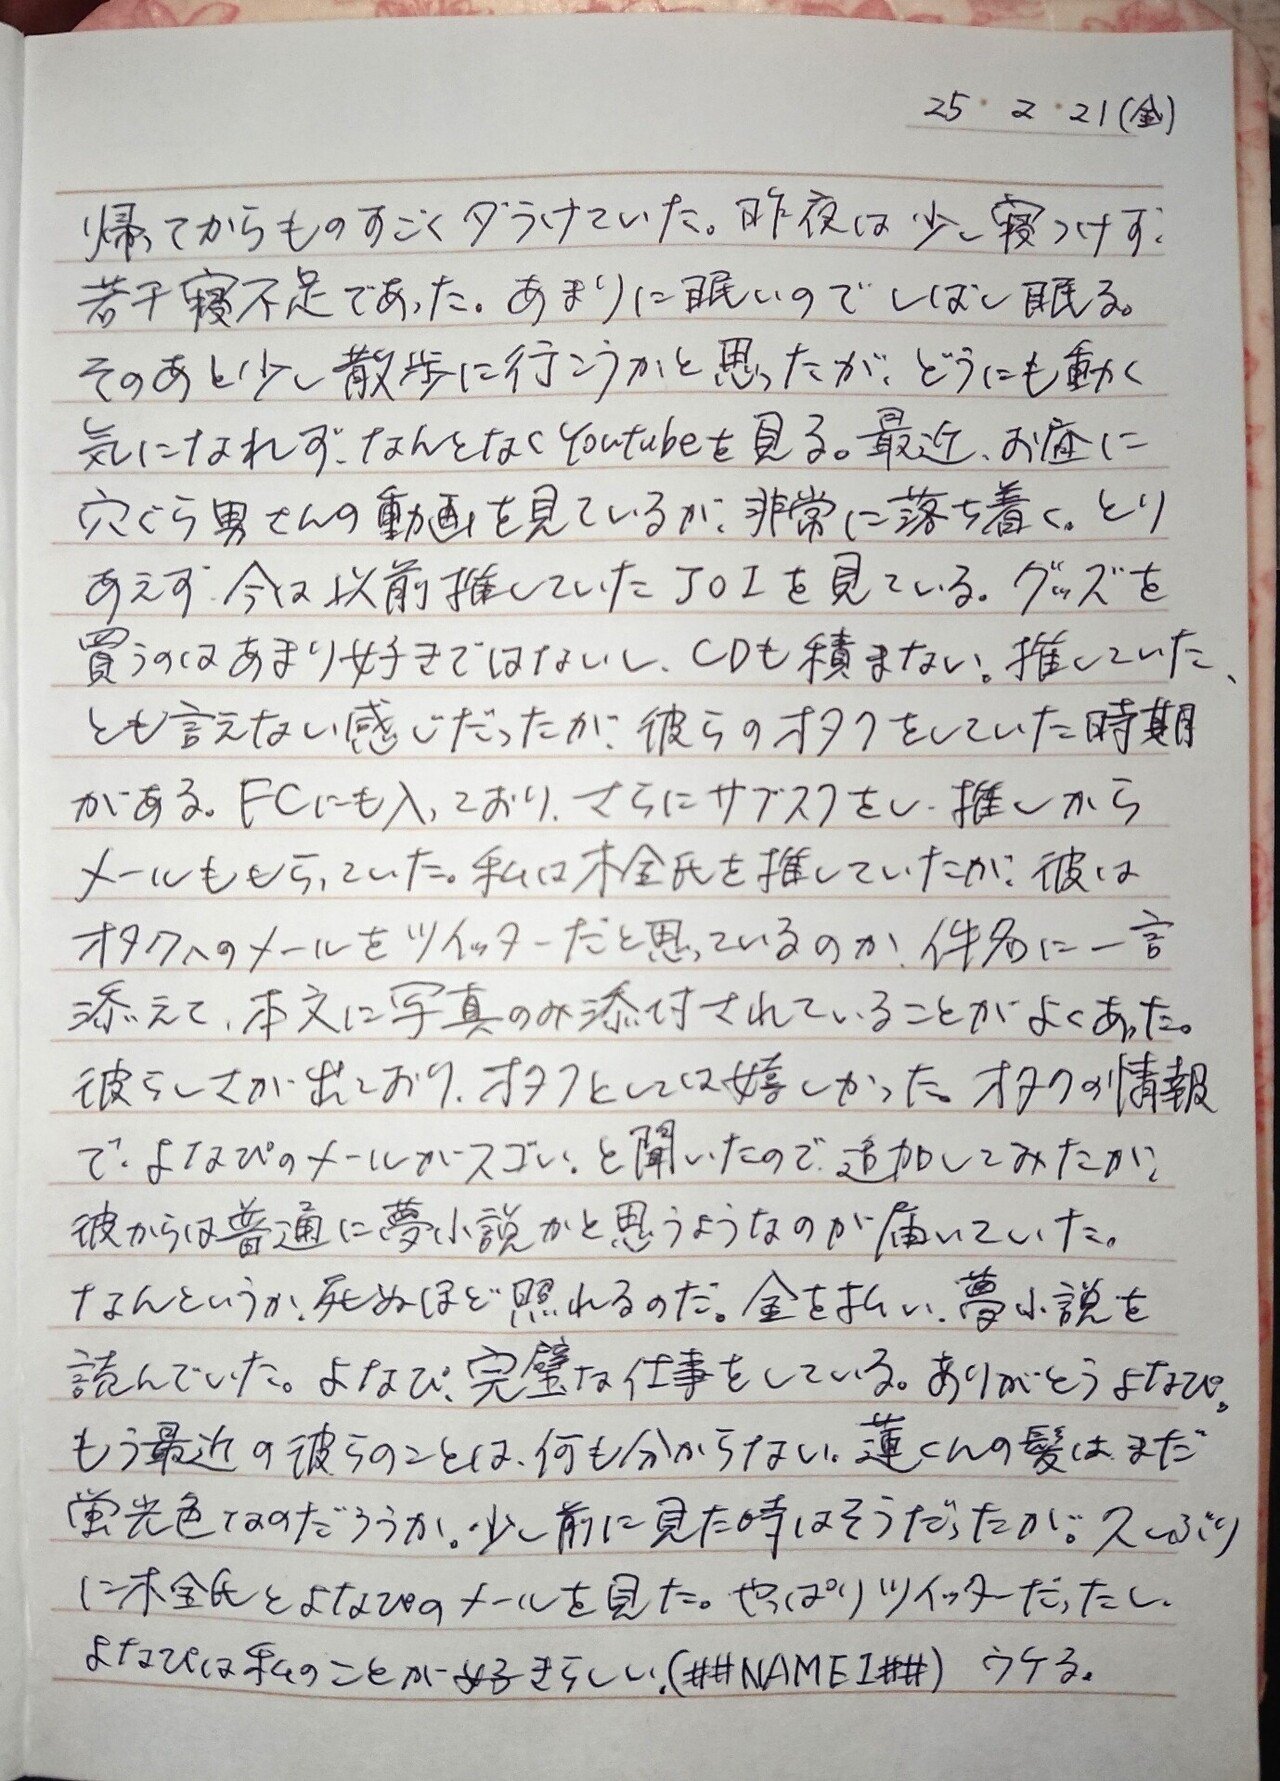 25・2・21(金)
帰ってからものすごくダラけていた。昨夜は少し寝つけず、
若干寝不足であった。あまりに眠いのでしばし眠る。
そのあと少し散歩に行こうかと思ったが、どうにも動く
気になれず、なんとなくYoutubeを見る。最近、お庭に
穴ぐら男さんの動画を見ているが、非常に落ち着く。とり
あえず、今は以前推していたJO1を見ている。グッズを
買うのはあまり好きではないし、CDも積まない。推していた、
とも言えない感じだったが、彼らのオタクをしていた時期
がある。FCにも入っており、さらにサブスクをし、推しから
メールももらっていた。私は木全氏を推していたが、彼は
オタクへのメールをツイッターだと思っているのか、件名に一言
添えて、本文に写真のみ添付されていることがよくあった。
彼らしさが出ており、オタクとしては嬉しかった。オタクの情報
で、よなぴのメールがスゴい、と聞いたので、追加してみたが、
彼からは普通に夢小説かと思うようなのが届いていた。
なんというか、死ぬほど照れるのだ。金を払い、夢小説を
読んでいた。よなぴ、完璧な仕事をしている。ありがとうよなぴ。
もう最近の彼らのことは、何も分からない。蓮くんの髪はまだ
蛍光色なのだろうか。少し前に見た時はそうだったが。久しぶり
に木全氏とよなぴのメールを見た。やっぱりツイッターだったし、
よなぴは私のことが好きらしい。(##NAME1##) ウケる。